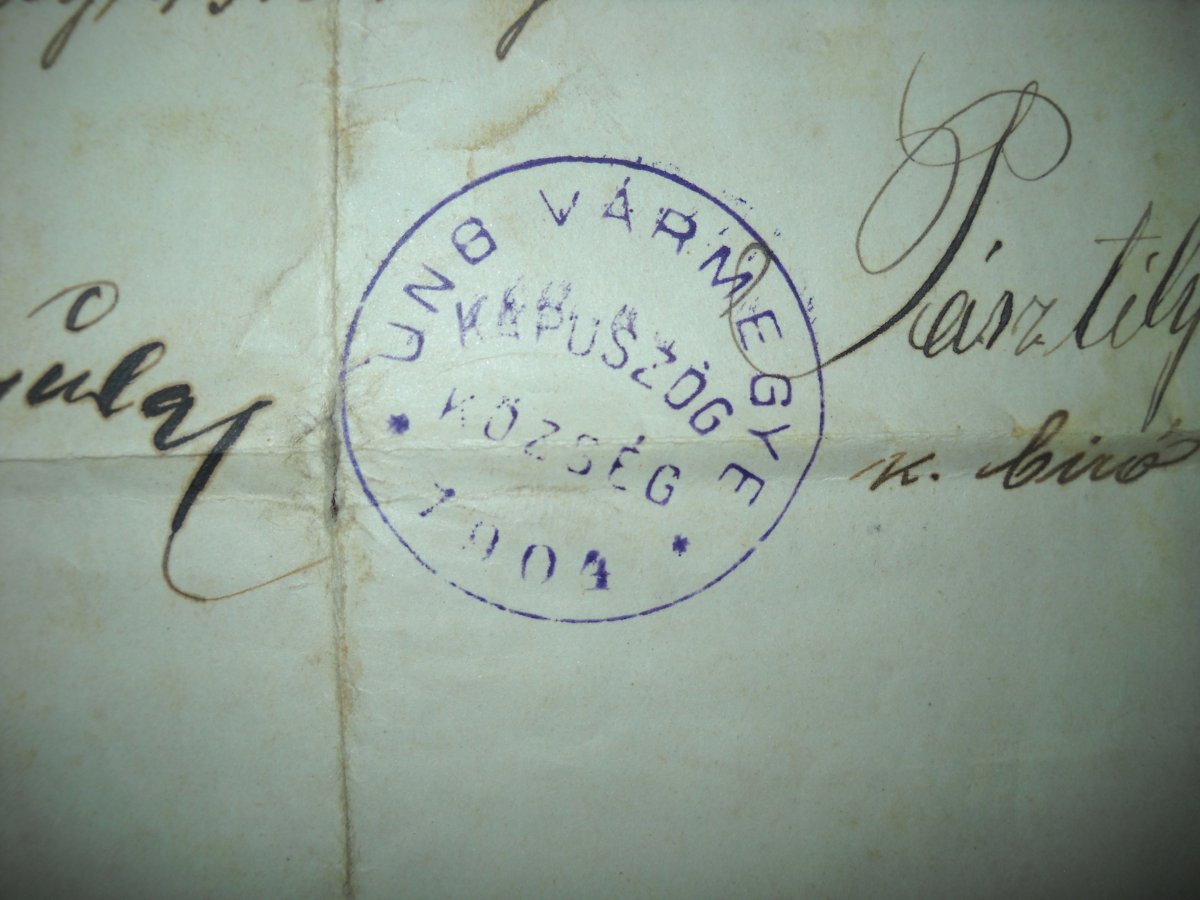 UNG VÁRMEGYE
KAPUSZÖG
KÖZSÉG
* 1904 *
Pásztély
k. biró